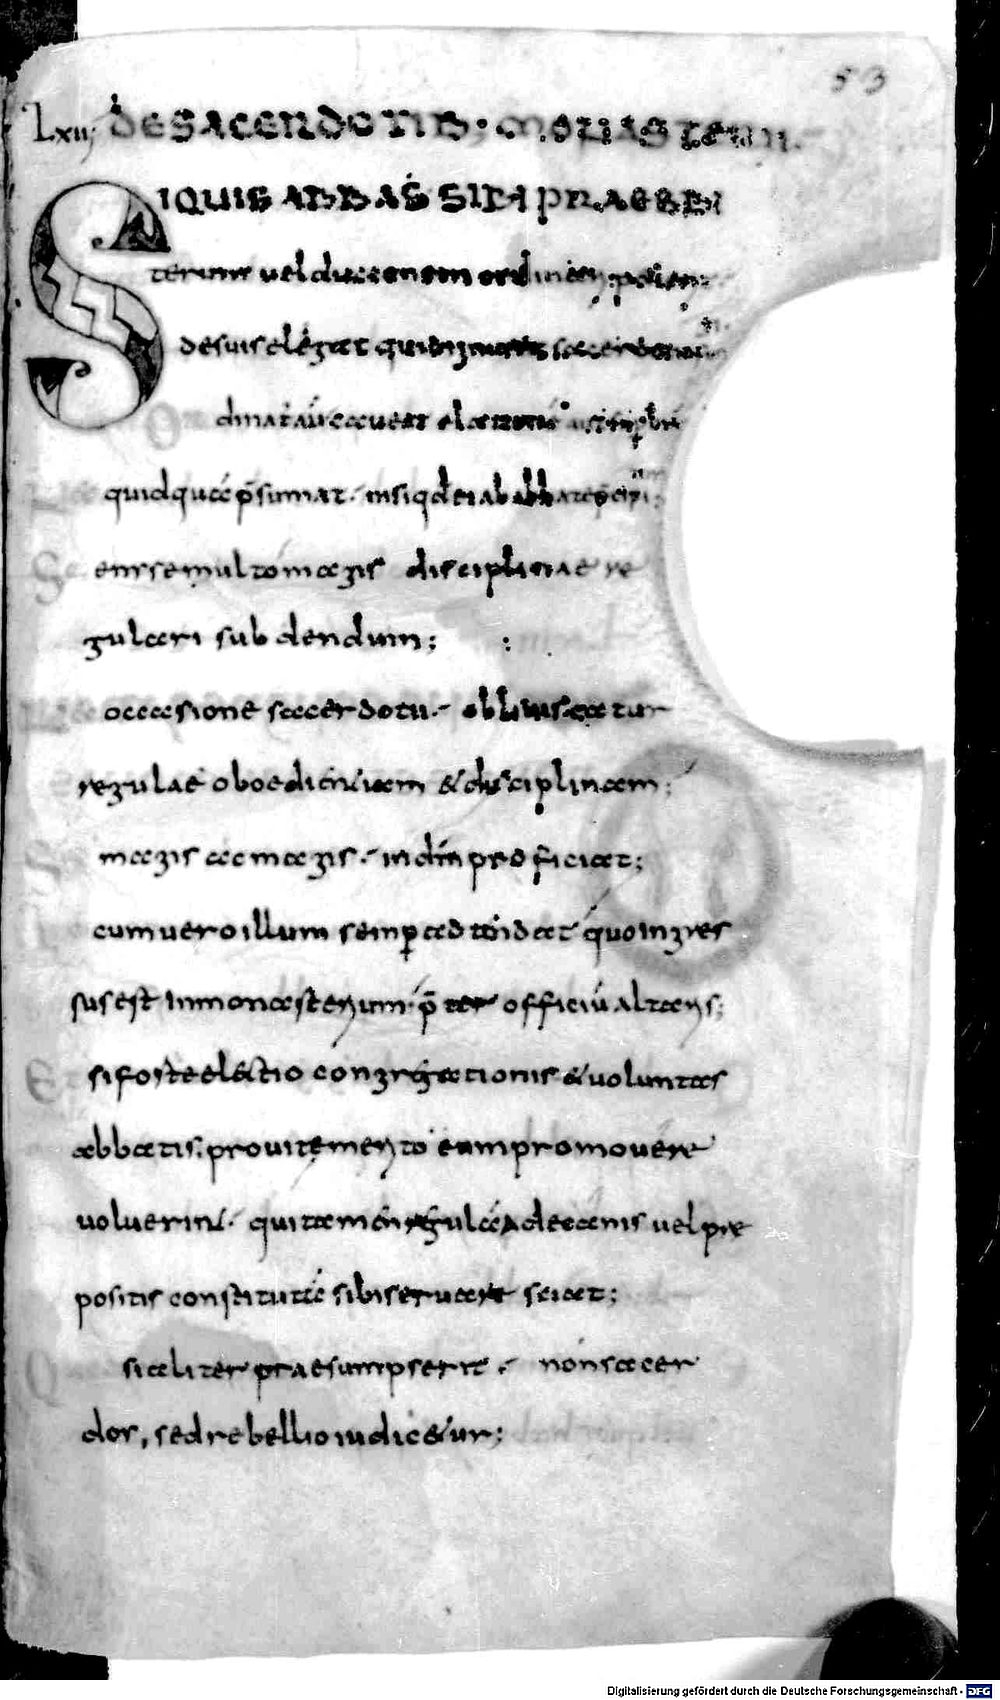 53
Lxii; DE SACERDOTIB; MONASTERII
SIQUIS ABBAS SIBI PRAESBI
terum vel diaconem ordinari petierit
de suis elegat qui dignus sit sacerdotio
dinatus caveat elationem
quid quā p̄sumat· nisi qd ei ab abbate p̄cipi
ens se multo magis disciplinae re
gulari subdendum;
occasione sacerdotii· obliviscatur
regulae oboedientiam & disciplinam;
magis ac magis· in dm̄ proficiat;
cum vero illum semp adtendat quo ingres
sus est in monasterium· p̄ter officiū altaris;
si forte electio congregationis & voluntas
abbatis· pro vite merito eum promovere
voluerint· qui tamen regulā a decanis vel pre
positis constitutā sibi servare sciat;
si aliter praesumpserit· non sacer
dos, sed rebellio iudic&ur;
Digitalisierung gefördert durch die Deutsche Forschungsgemeinschaft - DFG